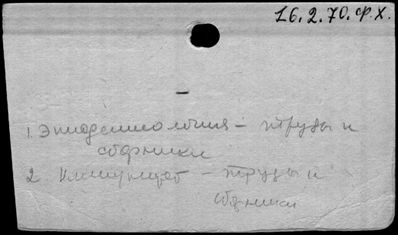 16.2.70.Ф.Х.
1. Эпидемиология – труды и
сборники
2 Иммунитет – труды и
сборники